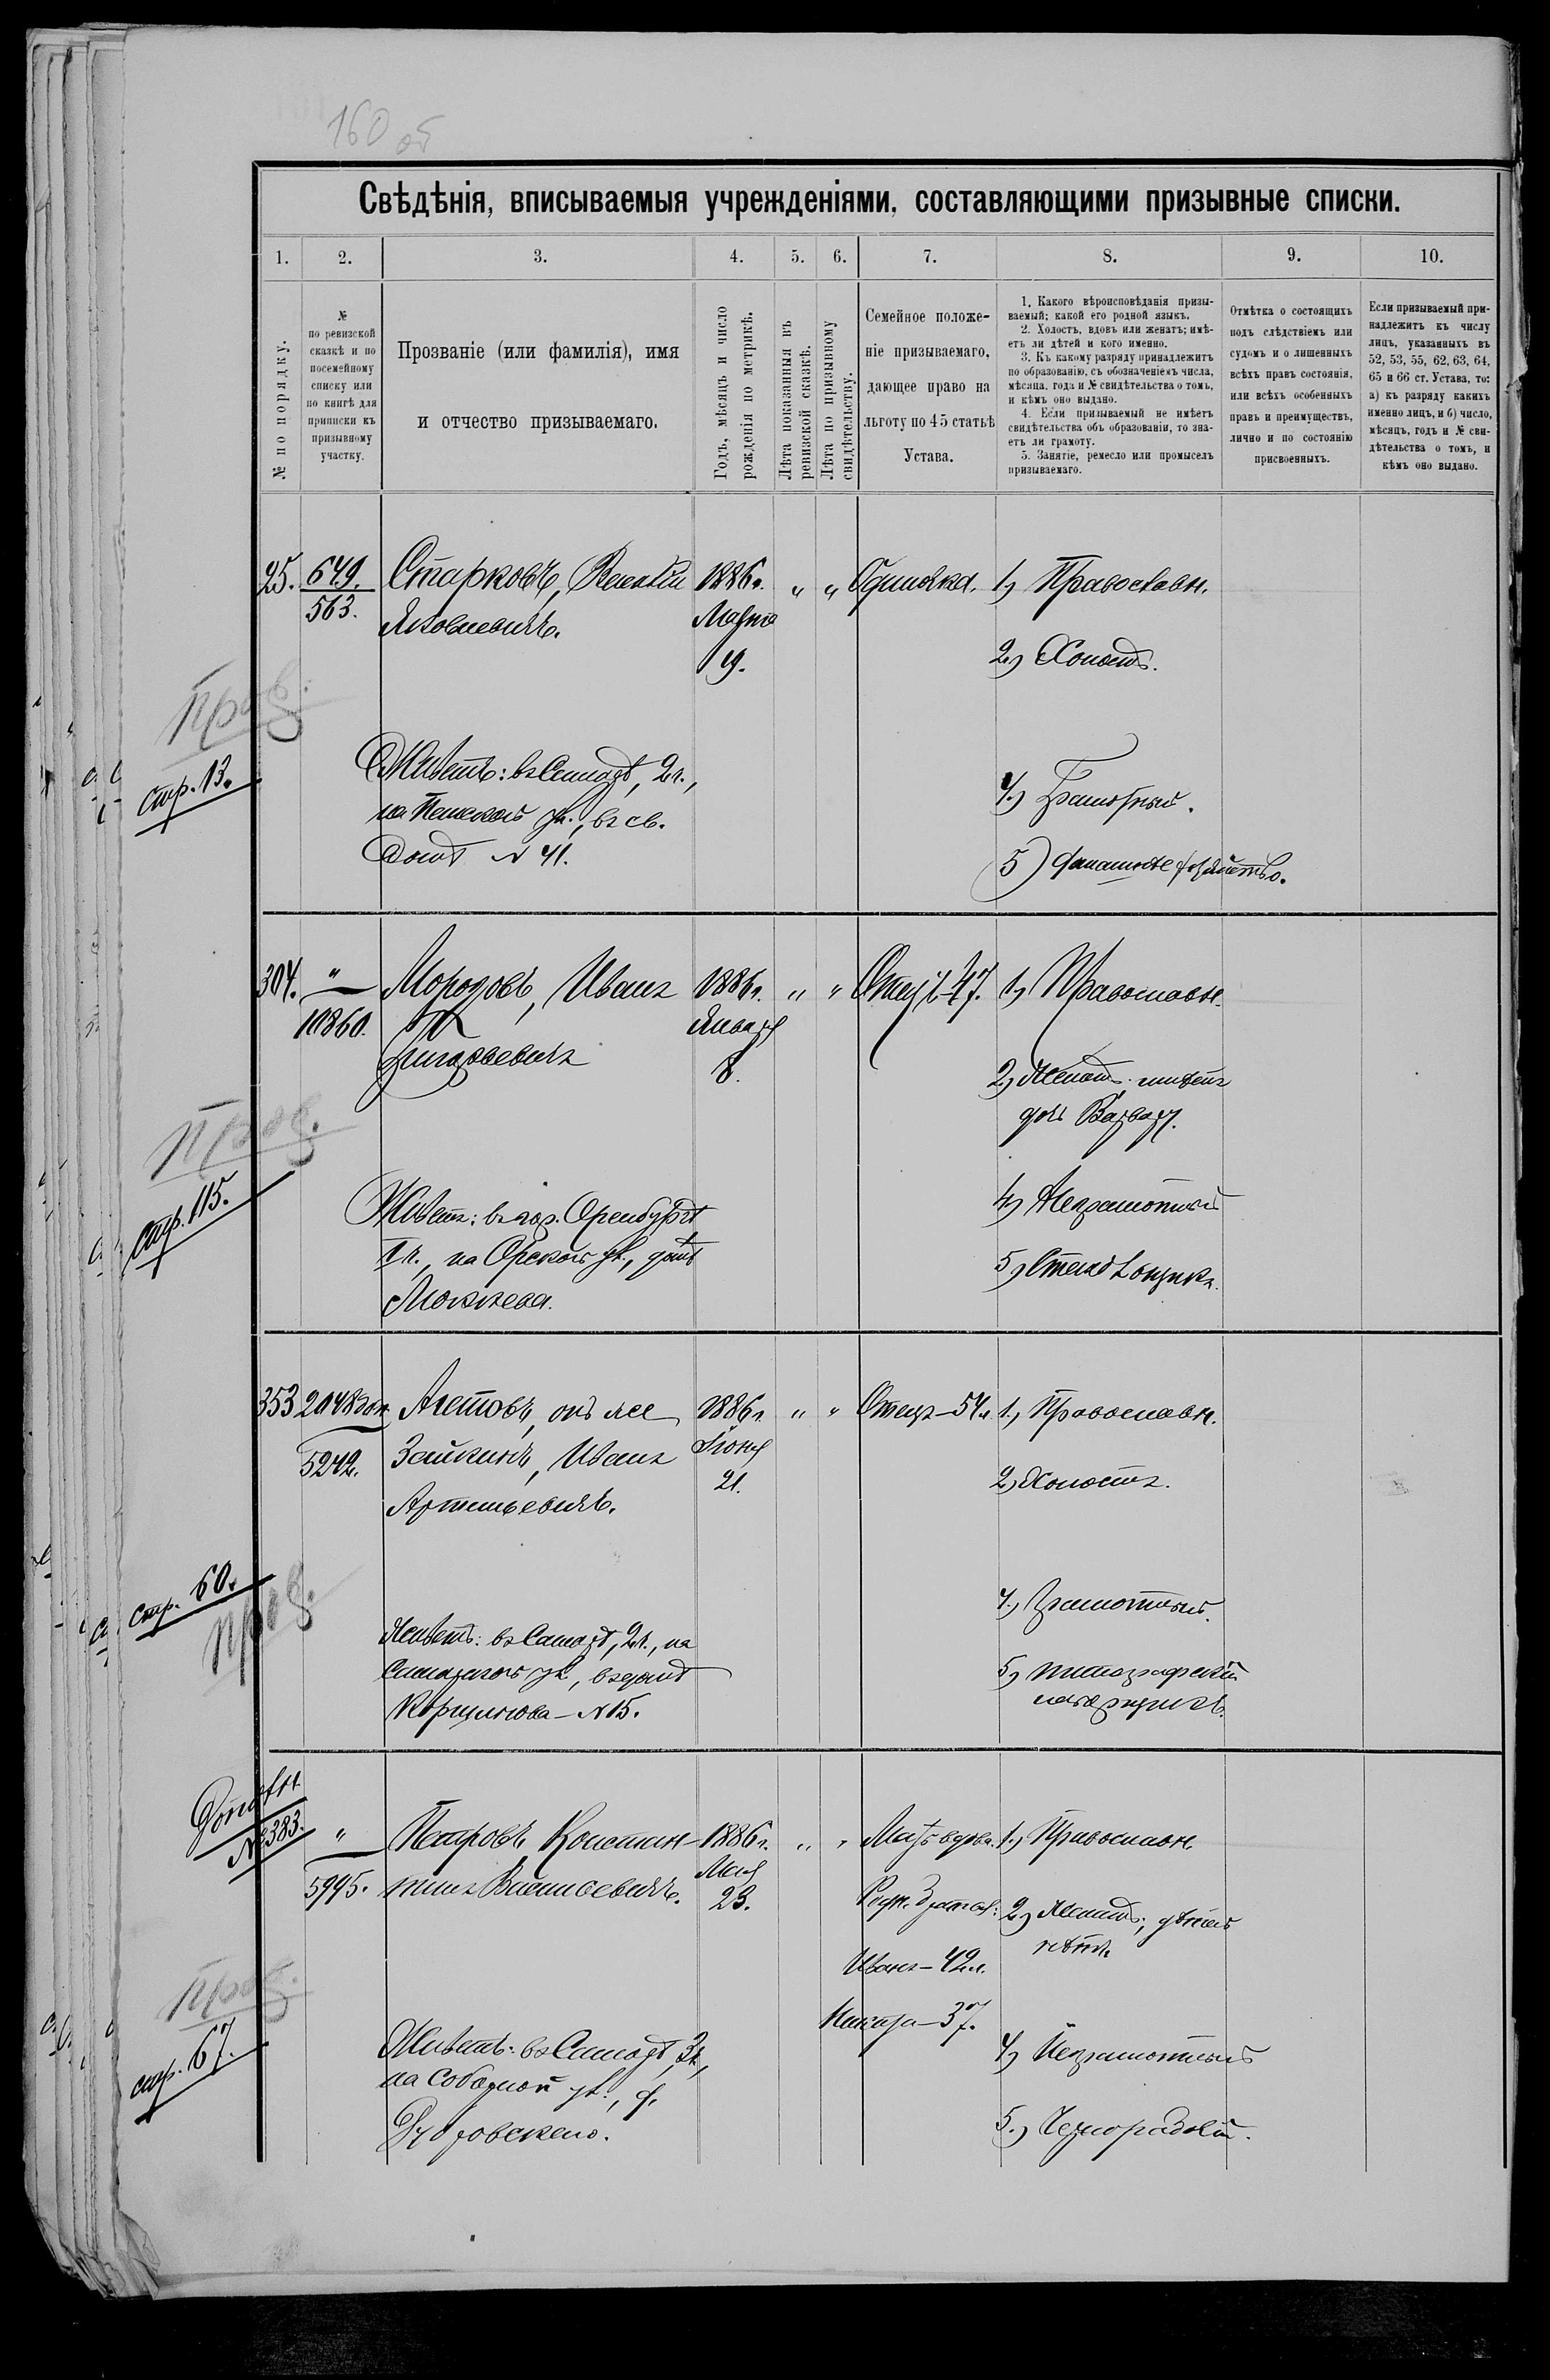 160 об
Свѣдѣнія, вписываемыя учрежденіями, составляющими призывные списки.
1. 2. 3. 4. 5. 6. 7. 8. 9. 10.
№ по порядку.
№
по ревизской
сказкѣ и по
посемейному
списку или
по книгѣ для
приписки къ
призывному
участку.
Прозваніе (или фамилія), имя
и отчество призываемаго.
Годъ, мѣсяцъ и число
рожденія по метрикѣ.
Лѣта показанныя въ
ревизской сказкѣ.
Лѣта по призывному
свидѣтельству.
Семейное положе-
ніе призываемаго,
дающее право на
льготу по 45 статьѣ
Устава.
1. Какого вѣроисповѣданія призы-
ваемый; какой его родной языкъ.
2. Холостъ, вдовъ или женатъ; имѣ-
етъ ли дѣтей и кого именно.
3. Къ какому разряду принадлежитъ
по образованію, съ обозначеніемъ числа,
мѣсяца, года и № свидѣтельства о томъ,
и кѣмъ оно выдано.
4. Если призываемый не имѣетъ
свидѣтельства объ образованіи, то зна-
етъ ли грамоту.
5. Занятіе, ремесло или промыселъ
призываемаго.
Отмѣтка о состоящихъ
подъ слѣдствіемъ или
судомъ и о лишенныхъ
всѣхъ правъ состоянія,
или всѣхъ особенныхъ
правъ и преимуществъ,
лично и по состоянію
присвоенныхъ.
Если призываемый при-
надлежитъ къ числу
лицъ, указанныхъ въ
52, 53, 55, 62, 63, 64,
65 и 66 ст. Устава, то:
а) къ разряду какихъ
именно лицъ, и б) число,
мѣсяцъ, годъ и № сви-
дѣтельства о томъ, и
кѣмъ оно выдано.
25. 649. Старковъ, 1886 г. " " Одиночка. 1) Православн.
563. Яковлевичъ. Марта
19. 2) Холостъ.
Пров:
стр. 13.
Живетъ: въ Самарѣ, 2 ч.,
на ул., въ св.
домѣ № 41.
4) Грамотный.
5) хозяйство.
304. " Морозовъ, Иванъ 1886 г. " " Отецъ 47. 1) Православн.
10860. Января
Григорьевичъ 8. 2) Женатъ. имѣетъ
дочь Варвару.
Пров.
Стр. 115.
Живетъ: въ гор. Оренбургѣ
1 ч., на Орской ул., домѣ
4) Неграмотный
5)
353 2048 5242. Агетовъ, онъ же 1886 г. " " Отецъ–54 л. 1) Православн.
Зайкинъ, Иванъ Іюня
Артемьевичъ. 21. 2) Холостъ.
стр. 60.
Пров.
Живетъ: въ Самарѣ, 2 ч., на
ул., въ домѣ
№ 15.
4) Грамотный.
5)
№ 383. " Петровъ, Констан- 1886 г. " " Мать вдова. 1) Православн.
5995. тинъ Васильевичъ. Мая
23. Родн. братья: 2) Женатъ; дѣтей
Иванъ–42 л. нѣтъ.
–37.
Пров.
стр. 67.
Живетъ: въ Самарѣ, 3 ч.,
на Соборной ул., д.
4) Неграмотный
5) Чернорабочій.